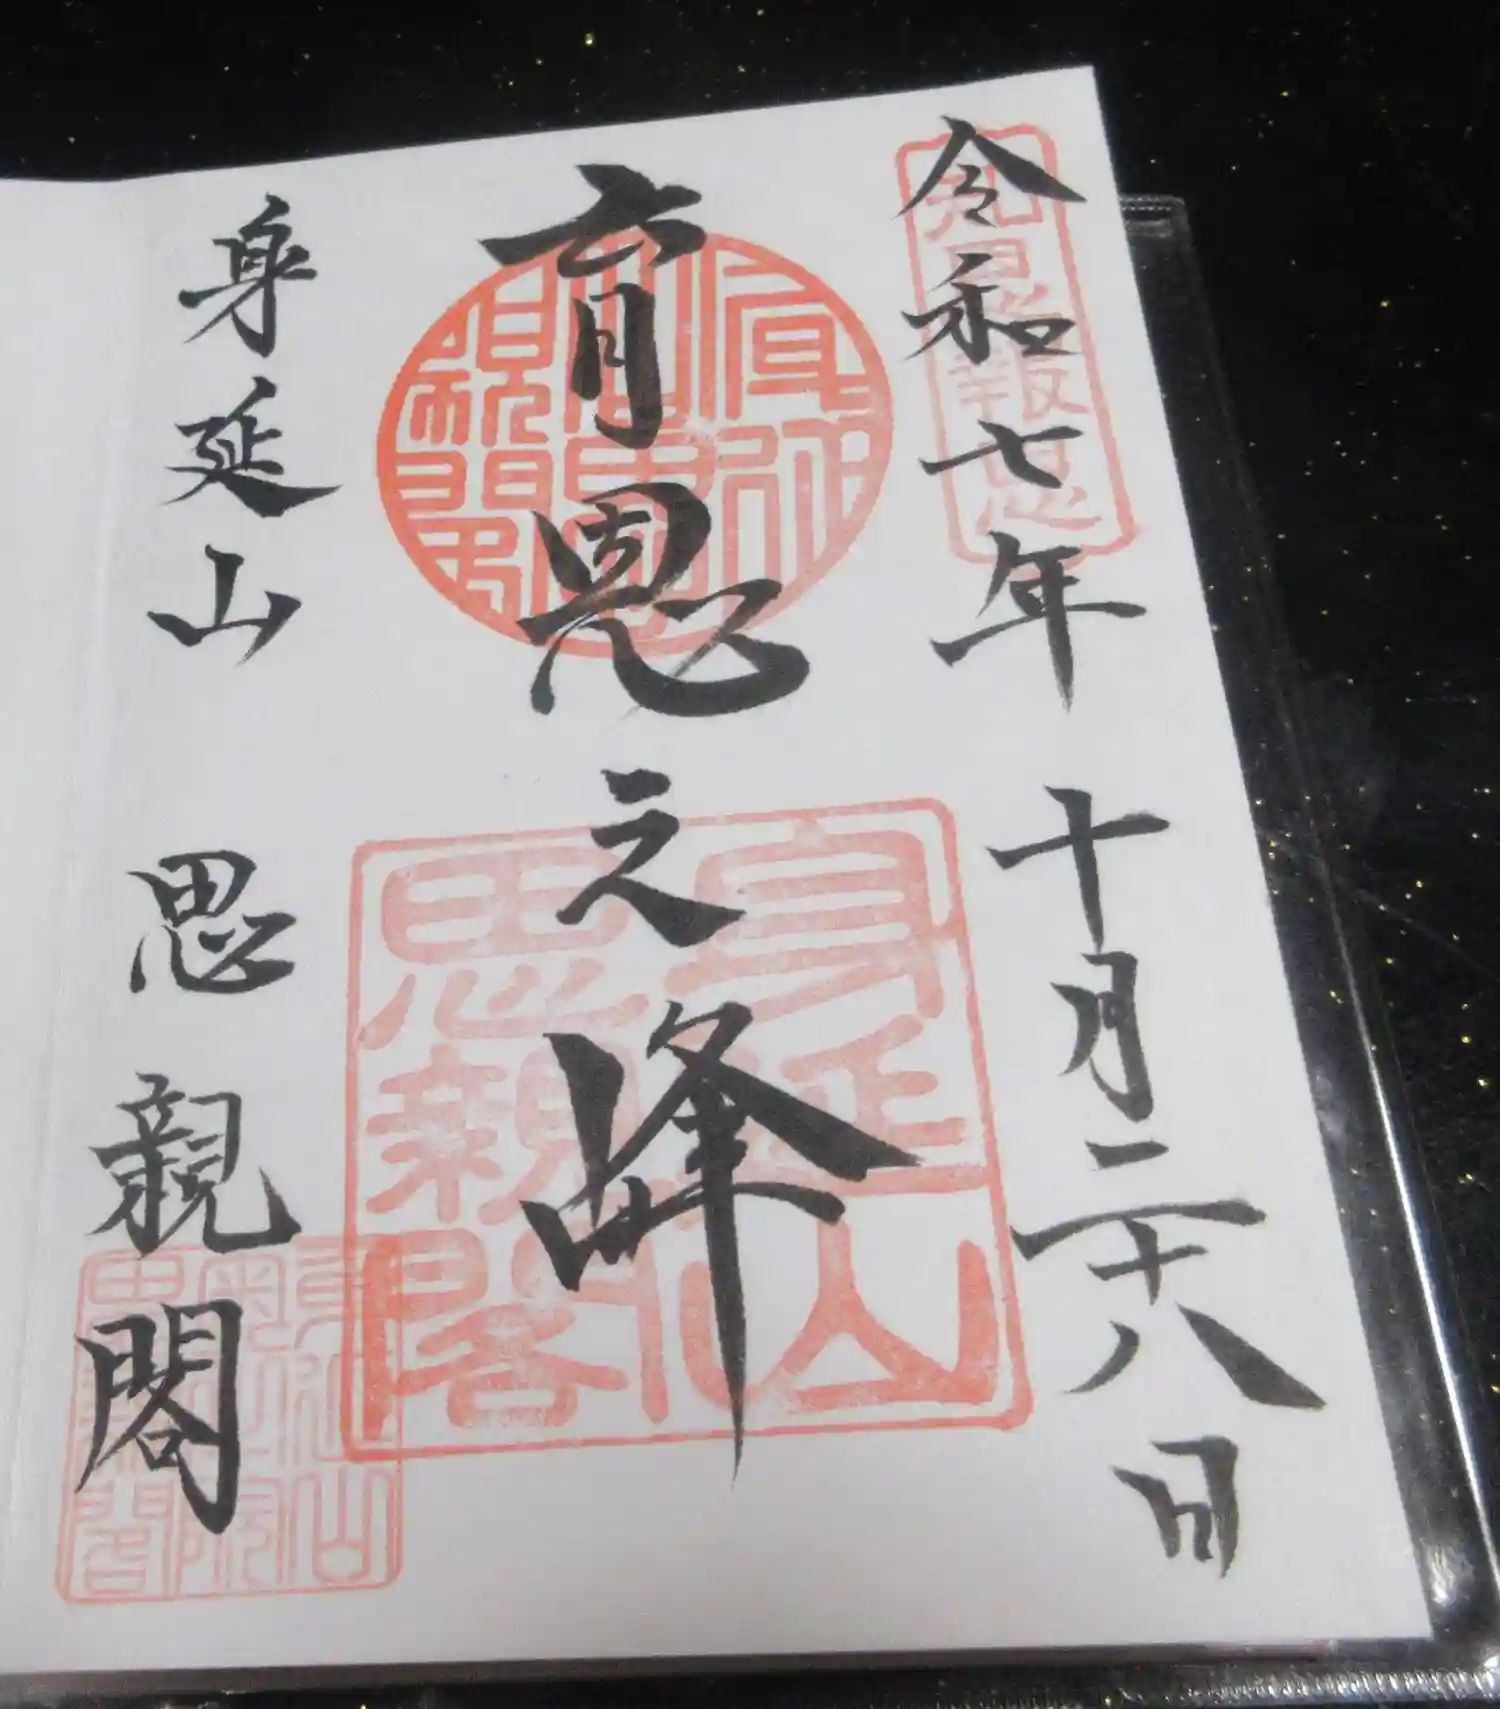 令和七年 十月二十八日
知恩報恩
育恩之峰
身延山
思親閣
身延山 思親閣